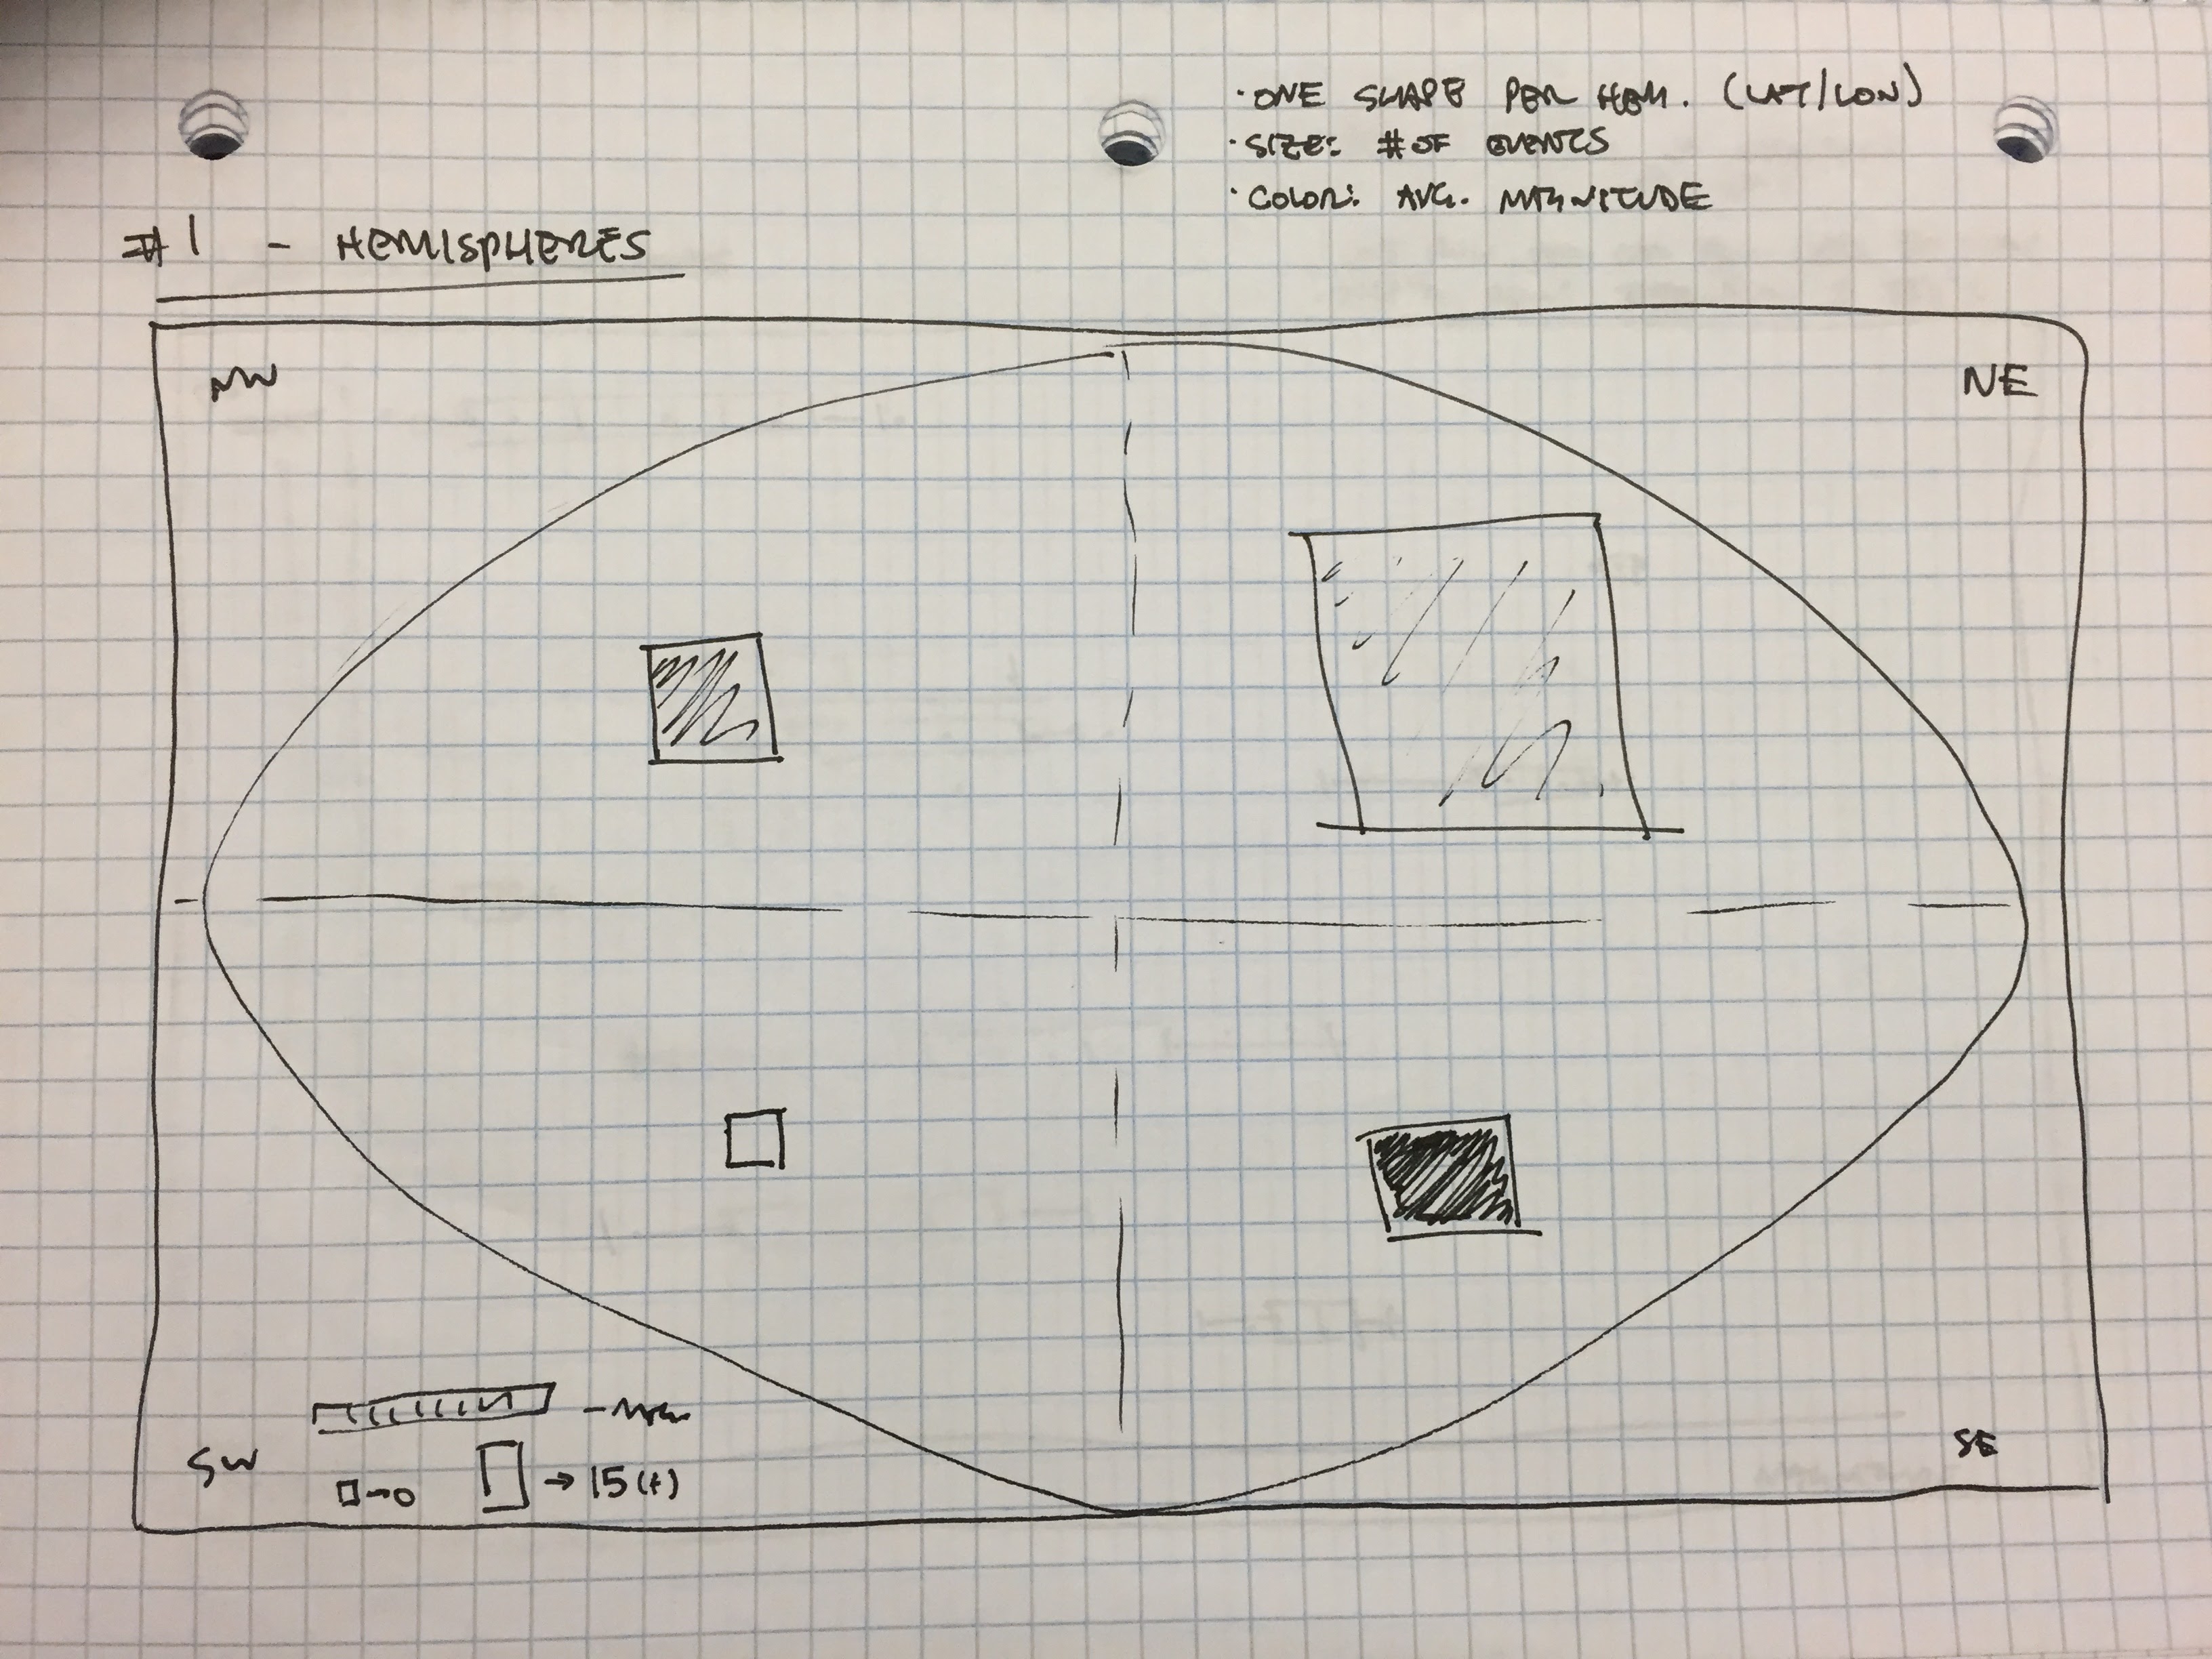 · ONE SHAPE PER HEM. (LAT/LON)
· SIZE: # OF EVENTS
· COLOR: AVG. MAGNITUDE
#1 - HEMISPHERES
NW
NE
- MAG.
SW
→ 0
→ 15(+)
SE